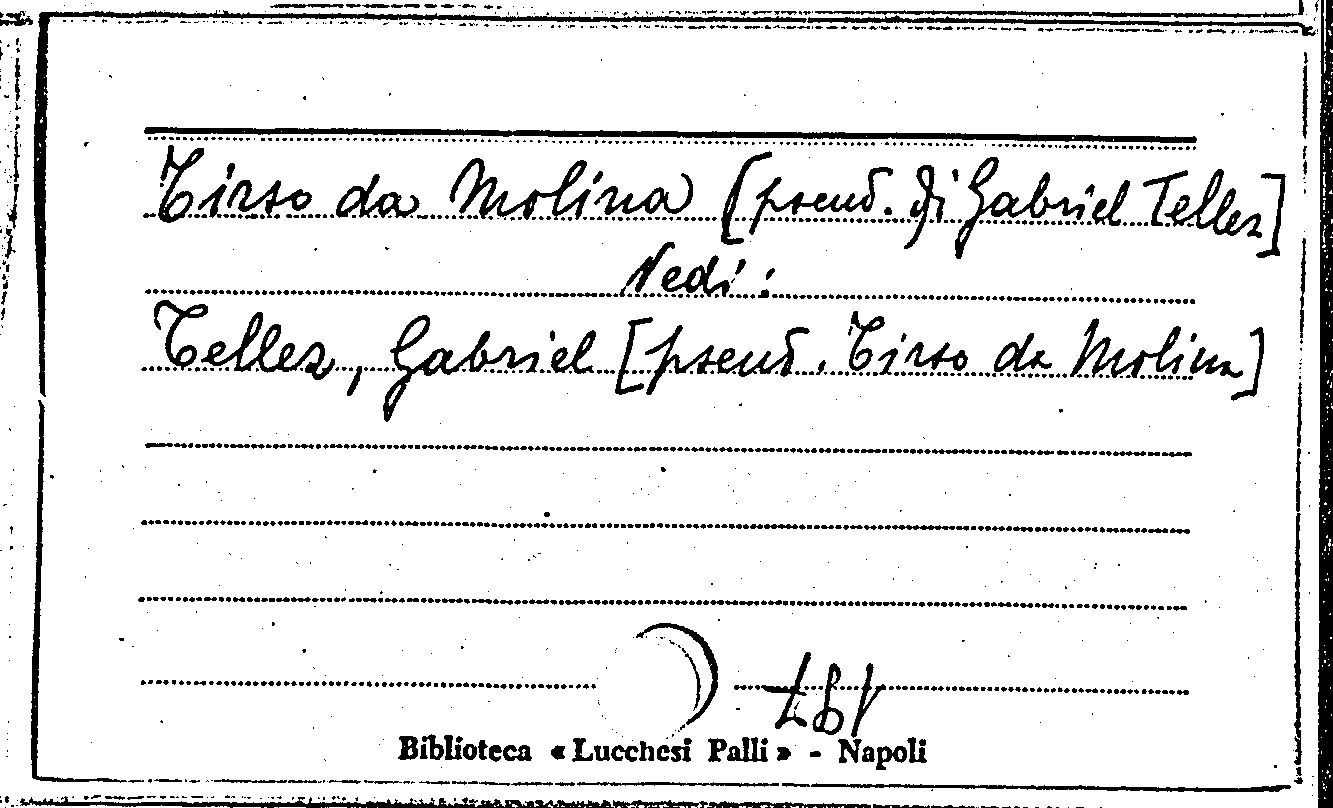 Tirso da Molina [pseud. di Gabriel Tellez]
Vedi:
Tellez, Gabriel [pseud. Tirso da Molina]
Biblioteca « Lucchesi Palli » - Napoli